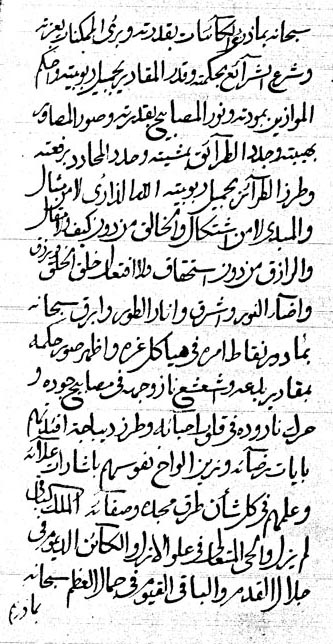 سبحانه بما ذرء الكائنات بقدرته وبرئ الممكنات بعزته
وشرع الشرائع بحكمته وقدر المقادير بجميل ربوبيته وحكم
الموازين بمودته ونور المصابيح بقدرته وصور المصاور
بهيبته وجدد الطرائق بمشيته وحدد المحادد برفعته
وطرز الطرائز بجميل ربوبيته اللـه الذارئ لا من مثال
والمبدئ لا من اشتكال والخالق من دون كيف ولا
والرازق من دون استحقاق ولا افتعال خلق الخلق ورزق
واضاء النور وشرق وانار الطور وابرق سبحانه
بما نقاط امره في هياكل عزه واظهر صور حكمه
بمقادير وشعشع نار وجهه في مصابيح جوده و
حرك نار وده في قلوب احبائه وطرز ديباجة افئدتهم
بايات رضائه وزبر الواح نفوسهم باشارات علائه
وعلمهم في كل شأن طرق محبته وصفائه الملك
لم يزل والحي المتعالي في علو الازل والكائن الديوم في
جلال القدم والباقي القيوم في جمال العظم سبحانه